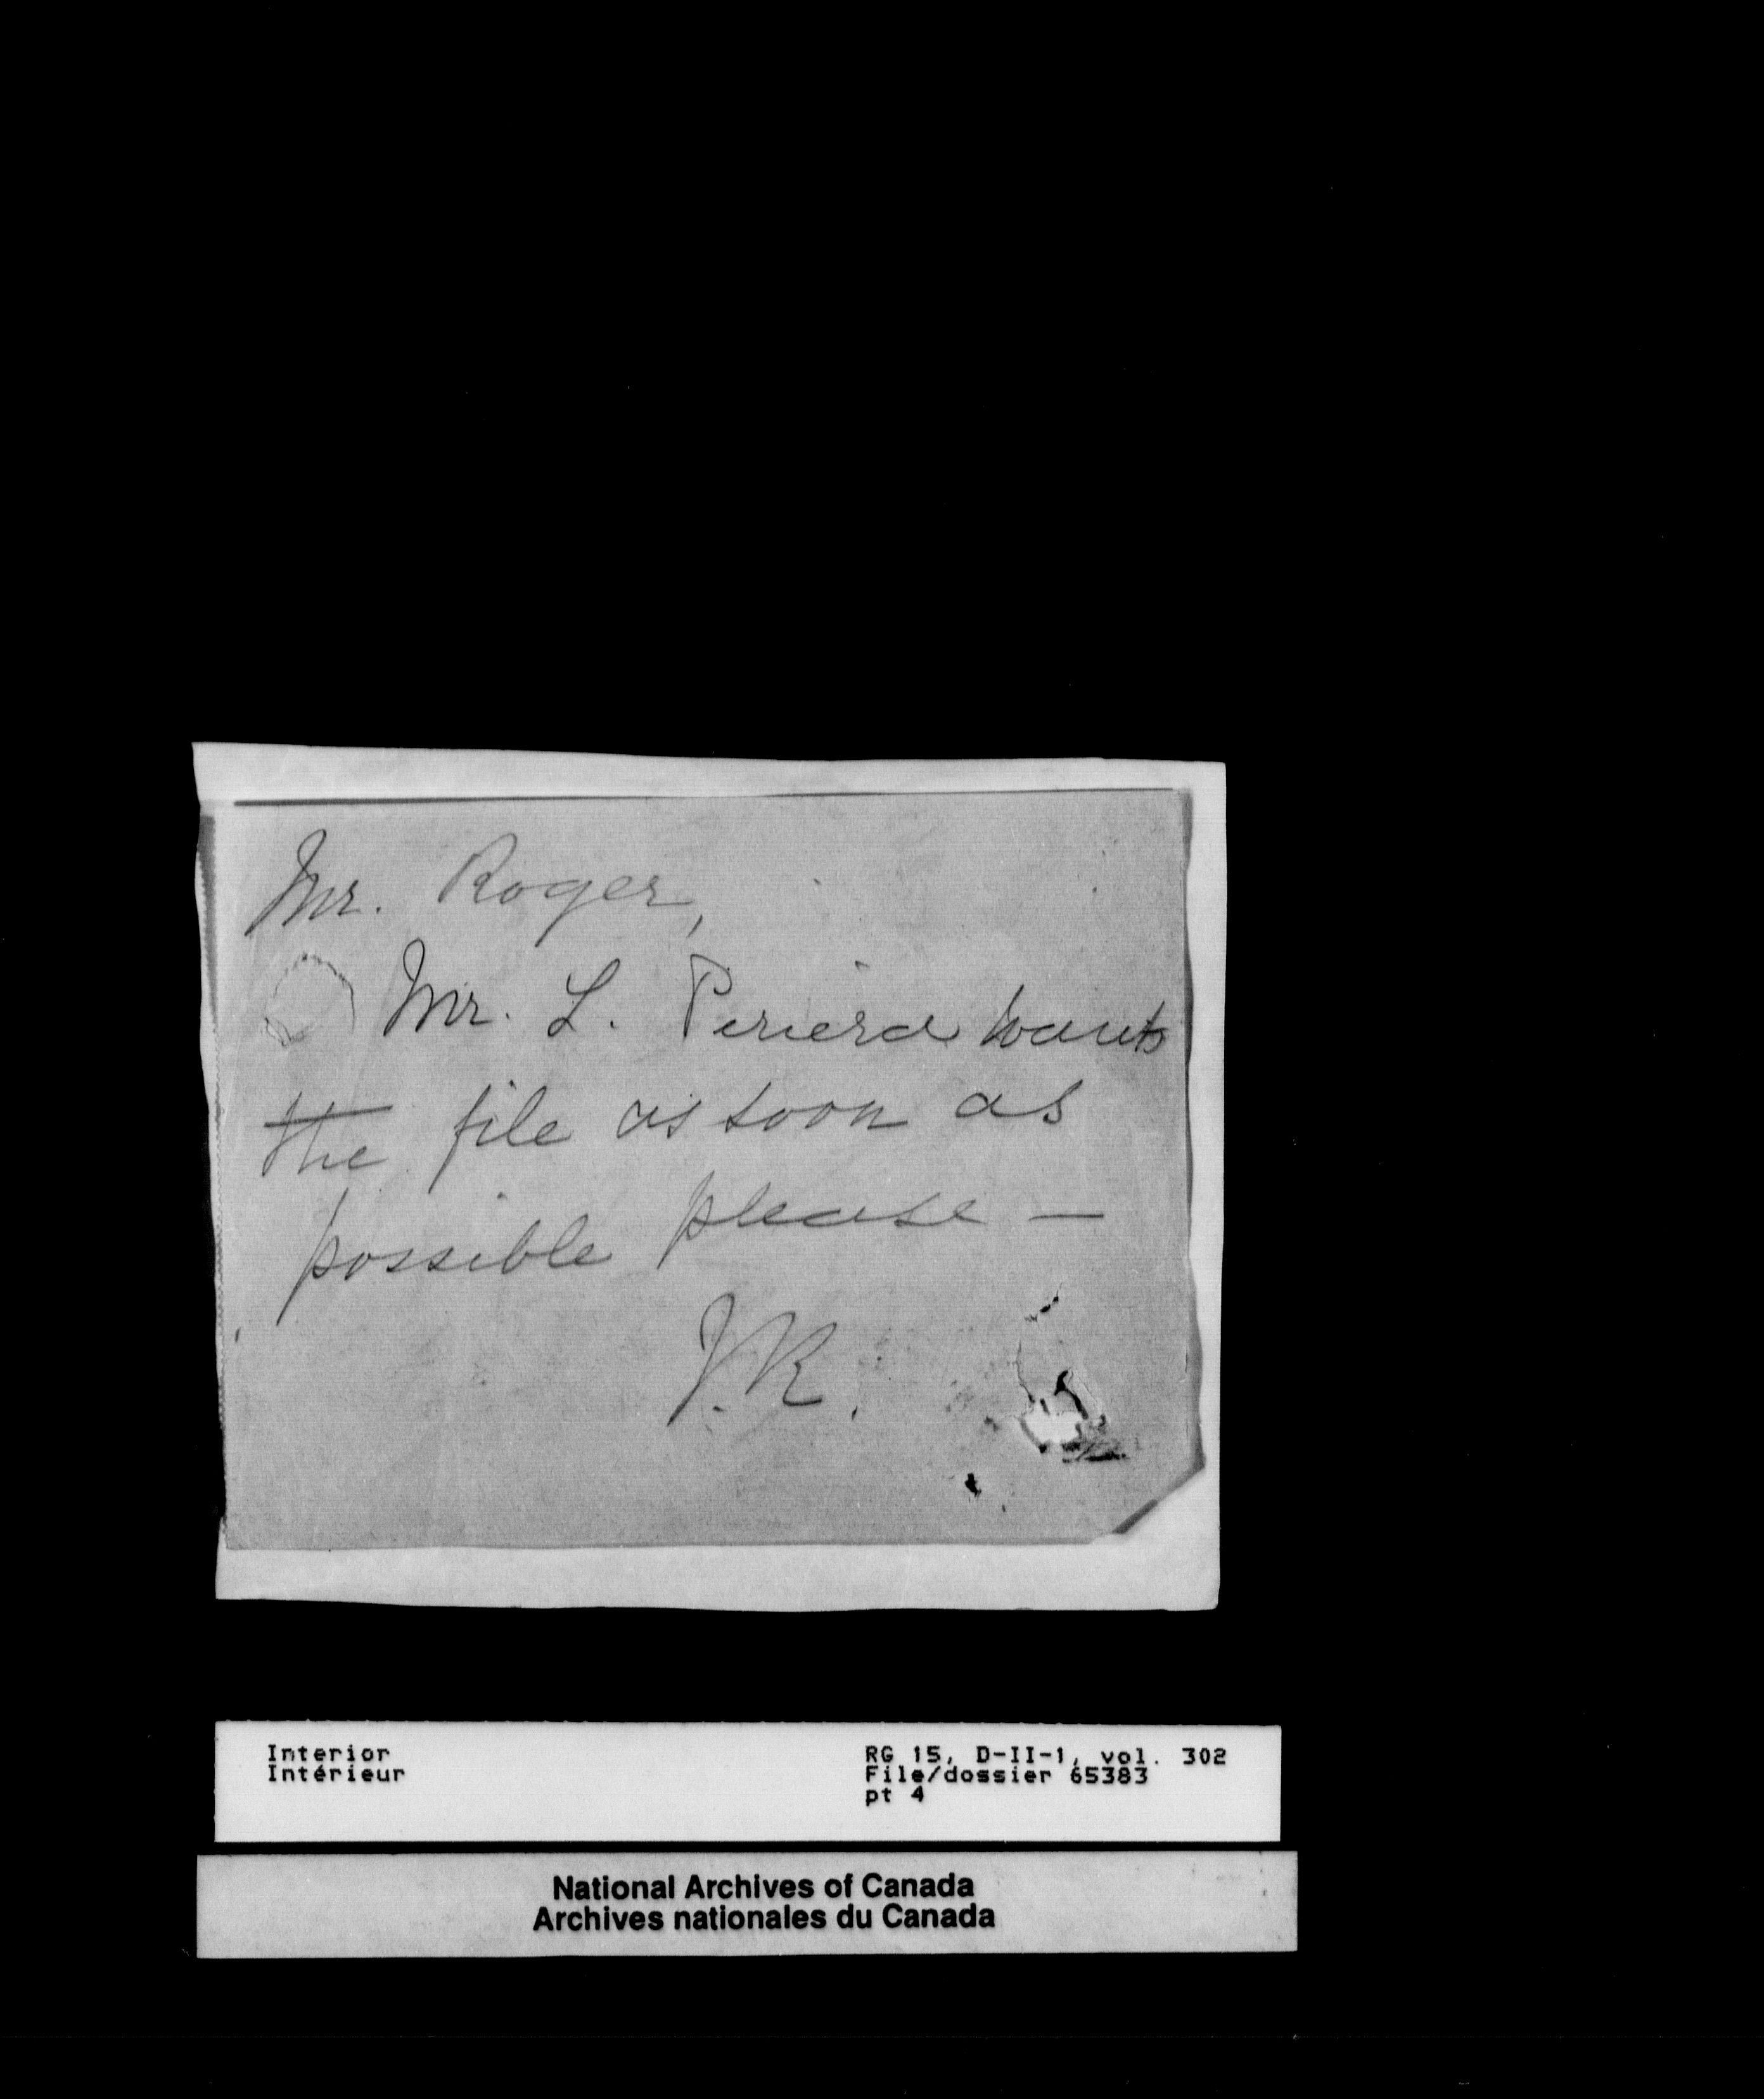 Mr. Roger,
Mr. L. Pereira wants
the file as soon as
possible please —
J.R.
Interior
Intérieur
RG 15, D-II-1, vol. 302
File/dossier 65383
pt 4
National Archives of Canada
Archives nationales du Canada